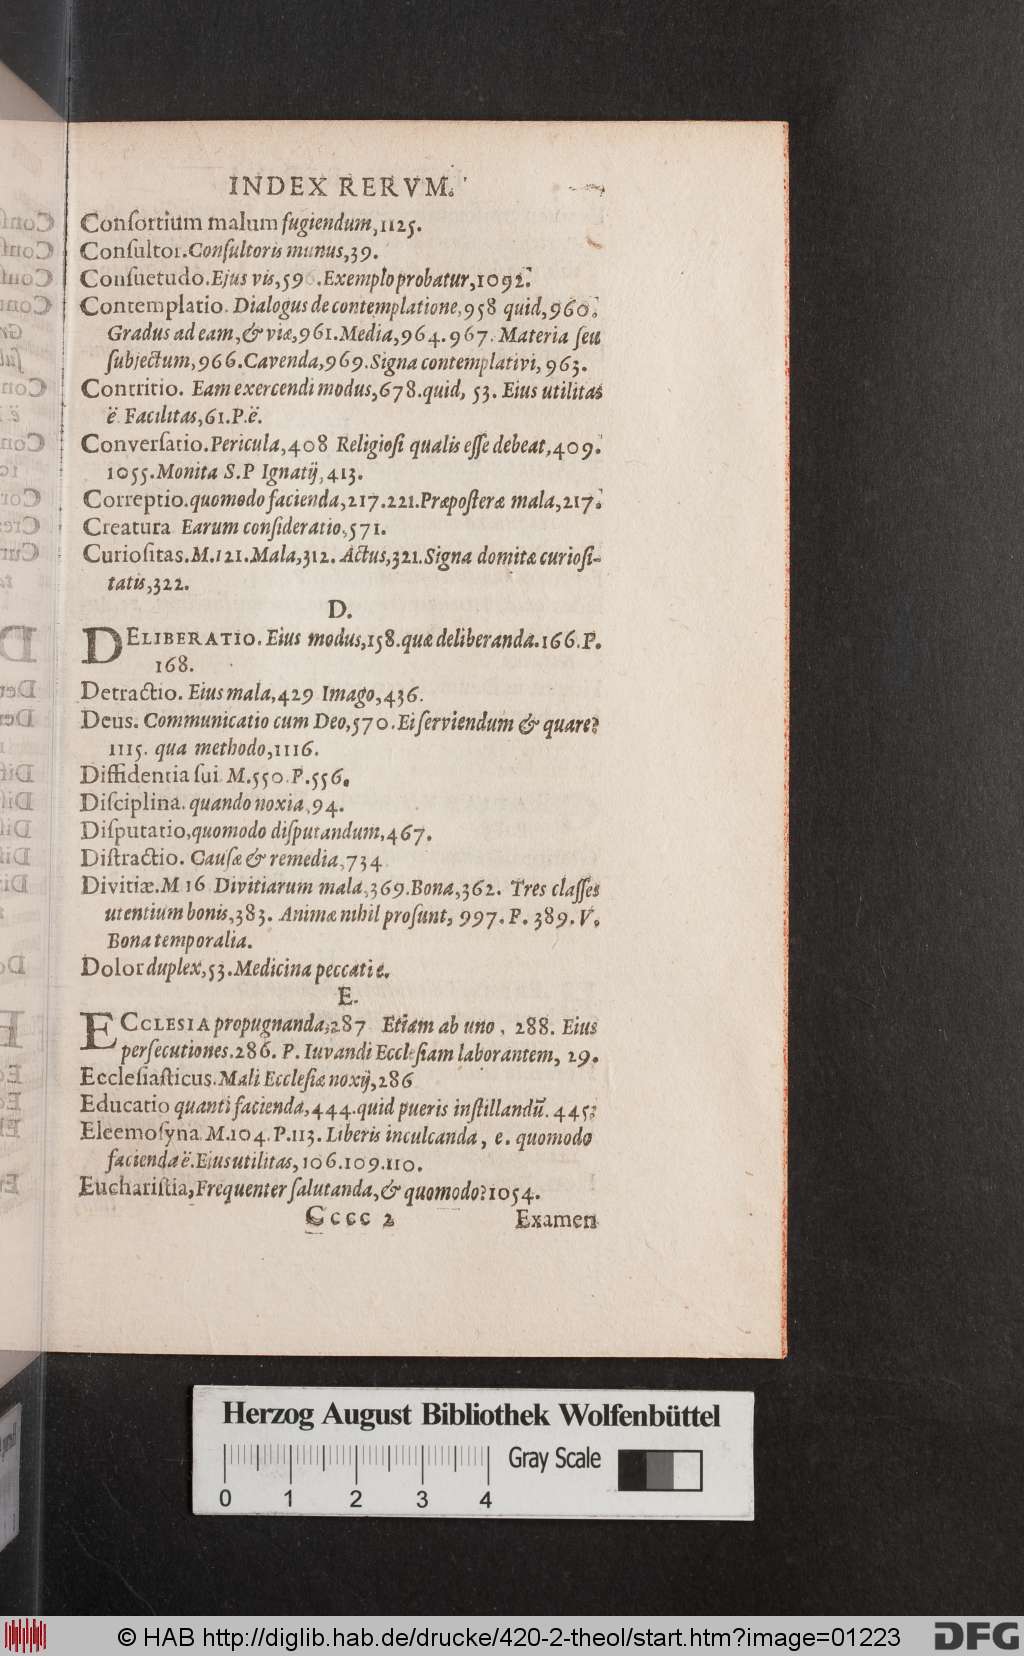 INDEX RERVM.
Conſortium malum fugiendum, 1125.
Conſultor. Conſultoris munus, 39.
Conſuetudo. Ejus vis, 59 . Exemplo probatur, 1092.
Contemplatio. Dialogus de contemplatione, 958 quid, 960.
Gradus ad eam, & viæ, 961. Media, 964. 967. Materia ſeu
ſubjectum, 966. Cavenda, 969. Signa contemplativi, 963.
Contritio. Eam exercendi modus, 678. quid, 53. Eius utilitas
ë Facilitas, 61. P. ë.
Converſatio. Pericula, 408 Religioſi qualis eſſe debeat, 409.
1055. Monita S. P Ignatij, 413.
Correptio. quomodo facienda, 217. 221. Præpoſteræ mala, 217.
Creatura Earum conſideratio, 571.
Curioſitas. M. 121. Mala, 312. Actus, 321. Signa domitæ curioſi-
tatis, 322.
D.
DELIBERATIO. Eius modus, 158. quæ deliberanda. 166. P.
168.
Detractio. Eius mala, 429 Imago, 436.
Deus. Communicatio cum Deo, 570. Ei ſerviendum & quare?
1115. qua methodo, 1116.
Diffidentia ſui M. 550. P. 556.
Diſciplina. quando noxia, 94.
Diſputatio, quomodo diſputandum, 467.
Diſtractio. Cauſæ & remedia, 734
Divitiæ. M 16 Divitiarum mala, 369. Bona, 362. Tres claſſes
utentium bonis, 383. Animæ nihil proſunt, 997. P. 389. V.
Bona temporalia.
Dolor duplex, 53. Medicina peccati e.
E.
ECCLESIA propugnanda, 287 Etiam ab uno, 288. Eius
perſecutiones. 286. P. Iuvandi Eccleſiam laborantem, 29.
Eccleſiaſticus. Mali Eccleſiæ noxij, 286
Educatio quanti facienda, 444. quid pueris inſtillandū. 445.
Eleemoſyna M. 104. P. 113. Liberis inculcanda, e. quomodo
facienda ë. Eius utilitas, 106. 109. 110.
Euchariſtia, Frequenter ſalutanda, & quomodo? 1054.
Cccc 2 Examen
Herzog August Bibliothek Wolfenbüttel
Gray Scale
0 1 2 3 4
© HAB http://diglib.hab.de/drucke/420-2-theol/start.htm?image=01223
DFG